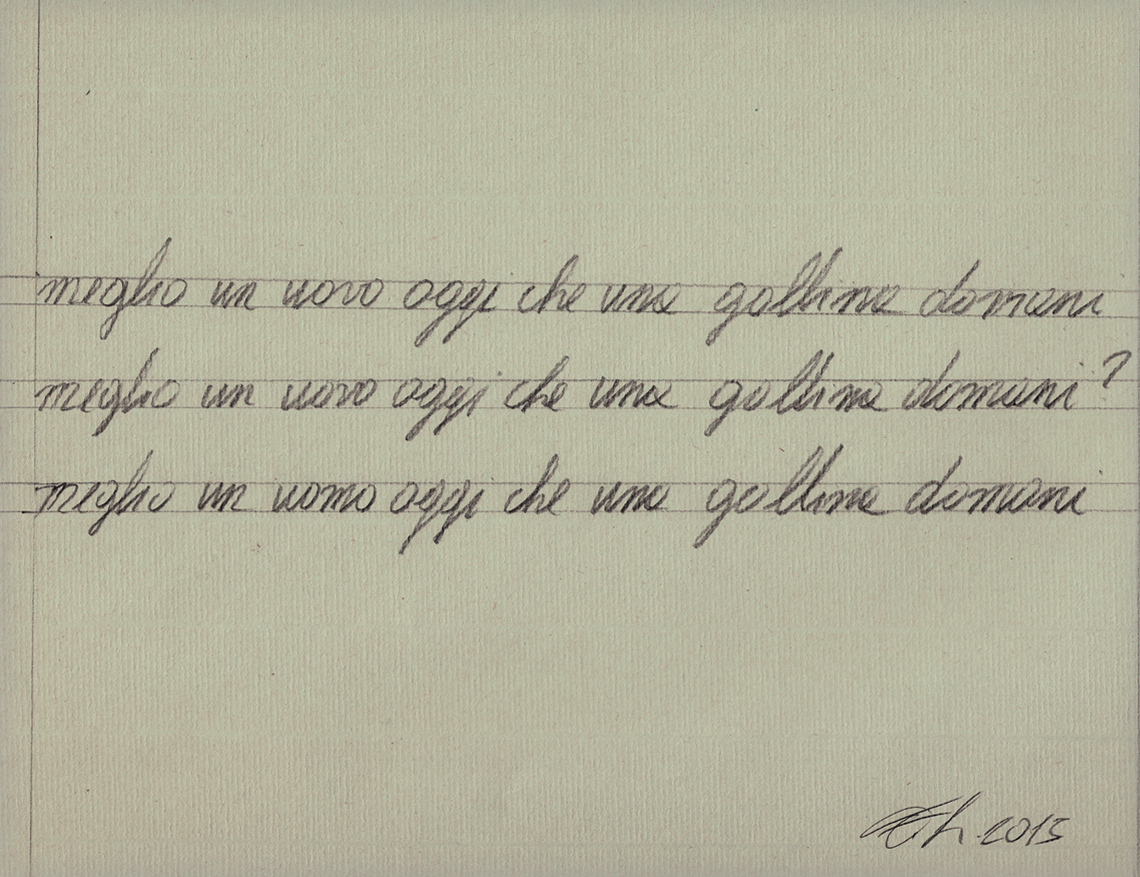 meglio un uovo oggi che una gallina domani
meglio un uovo oggi che una gallina domani?
meglio un uomo oggi che una gallina domani
2015